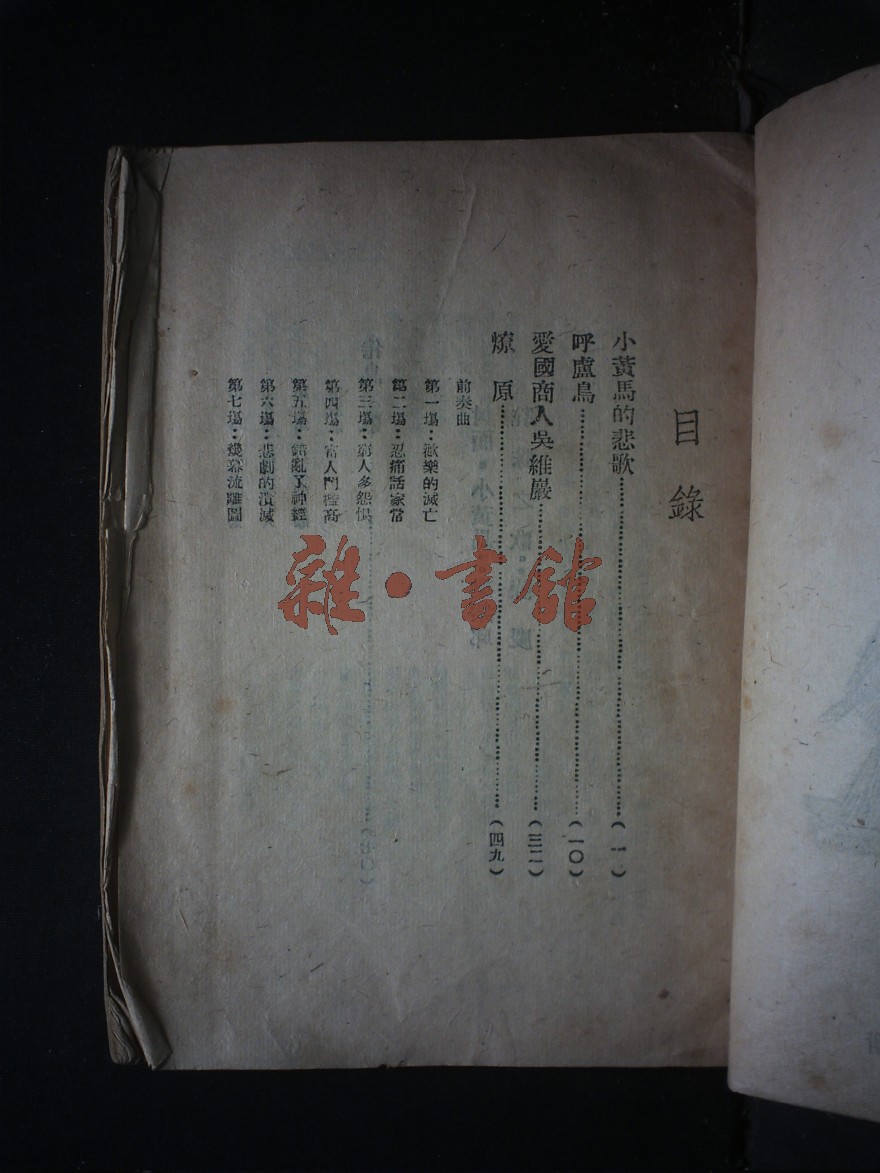 目錄
小黃馬的悲歌……(一)
呼盧鳥……(一〇)
愛國商人吳維巖……(三二)
燎原……(四九)
前奏曲
第一場：歡樂的滅亡
第二場：忍痛話家常
第三場：窮人多怨恨
第四場：富人門檻高
第五場：錯亂了神經
第六場：悲劇的潰滅
第七場：幾幕流離圖
雜·書館